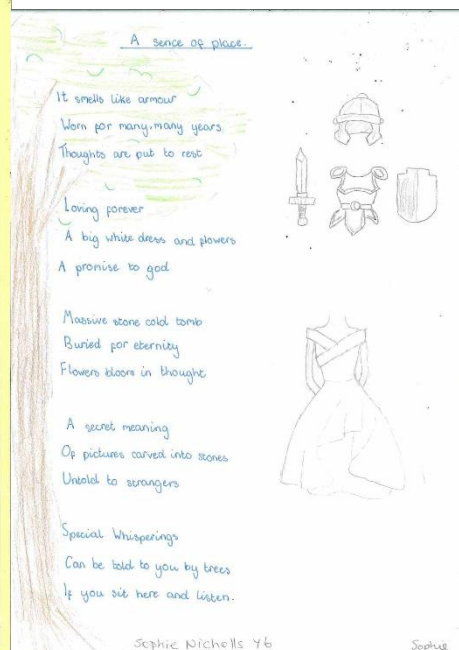 A sence of place.
It smells like armour
Worn for many, many years
Thoughts are put to rest
Loving forever
A big white dress and flowers
A promise to god
Massive stone cold tomb
Buried for eternity
Flowers bloom in thought
A secret meaning
Of pictures carved into stones
Untold to strangers
Special Whisperings
Can be told to you by trees
If you sit here and listen.
Sophie Nicholls Y6
Sophie